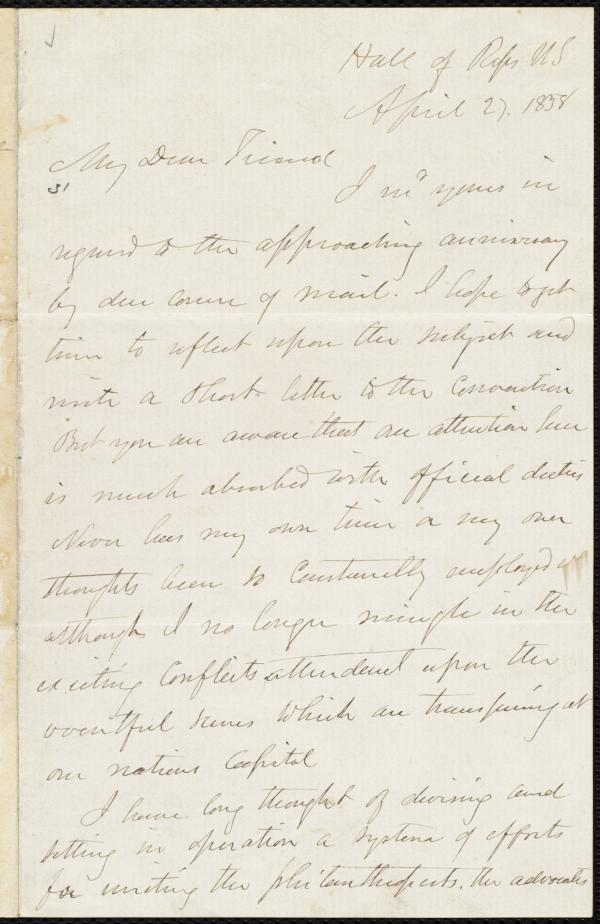 Hall of Reps US
April 27. 1858
My Dear Friend
I recd yours in
regard to the approaching anniversary
by due course of mail. I hope to get
time to reflect upon the subject and
write a short letter to the Convention
But you are aware that our attention here
is much absorbed with official duties
Never has my own time or my own
thoughts been so constantly employed
although I no longer mingle in the
exciting Conflicts attendant upon the
eventful scenes which are transpiring at
our nations Capitol
I have long thought of devising and
setting in operation a system of efforts
for uniting the philanthropists, the advocates